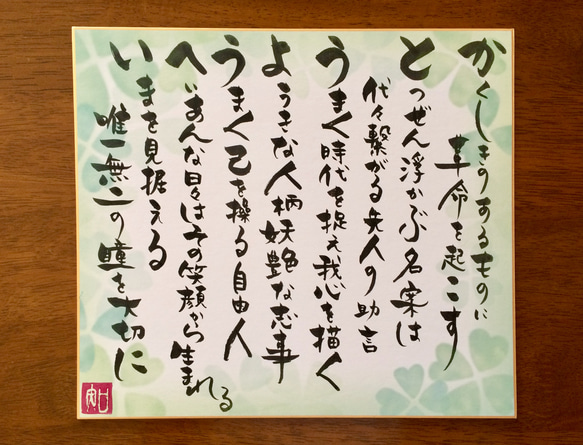 かくしきのあるものに
革命を起こす
とつぜん浮かぶ名案は
代々繋がる先人の助言
うまく時代を捉え我心を描く
ようきな人柄 豊な志事
うまく己を操る自由人
へいあんな日々はその笑顔から生まれる
いまを見据える
唯一無二の瞳を大切に